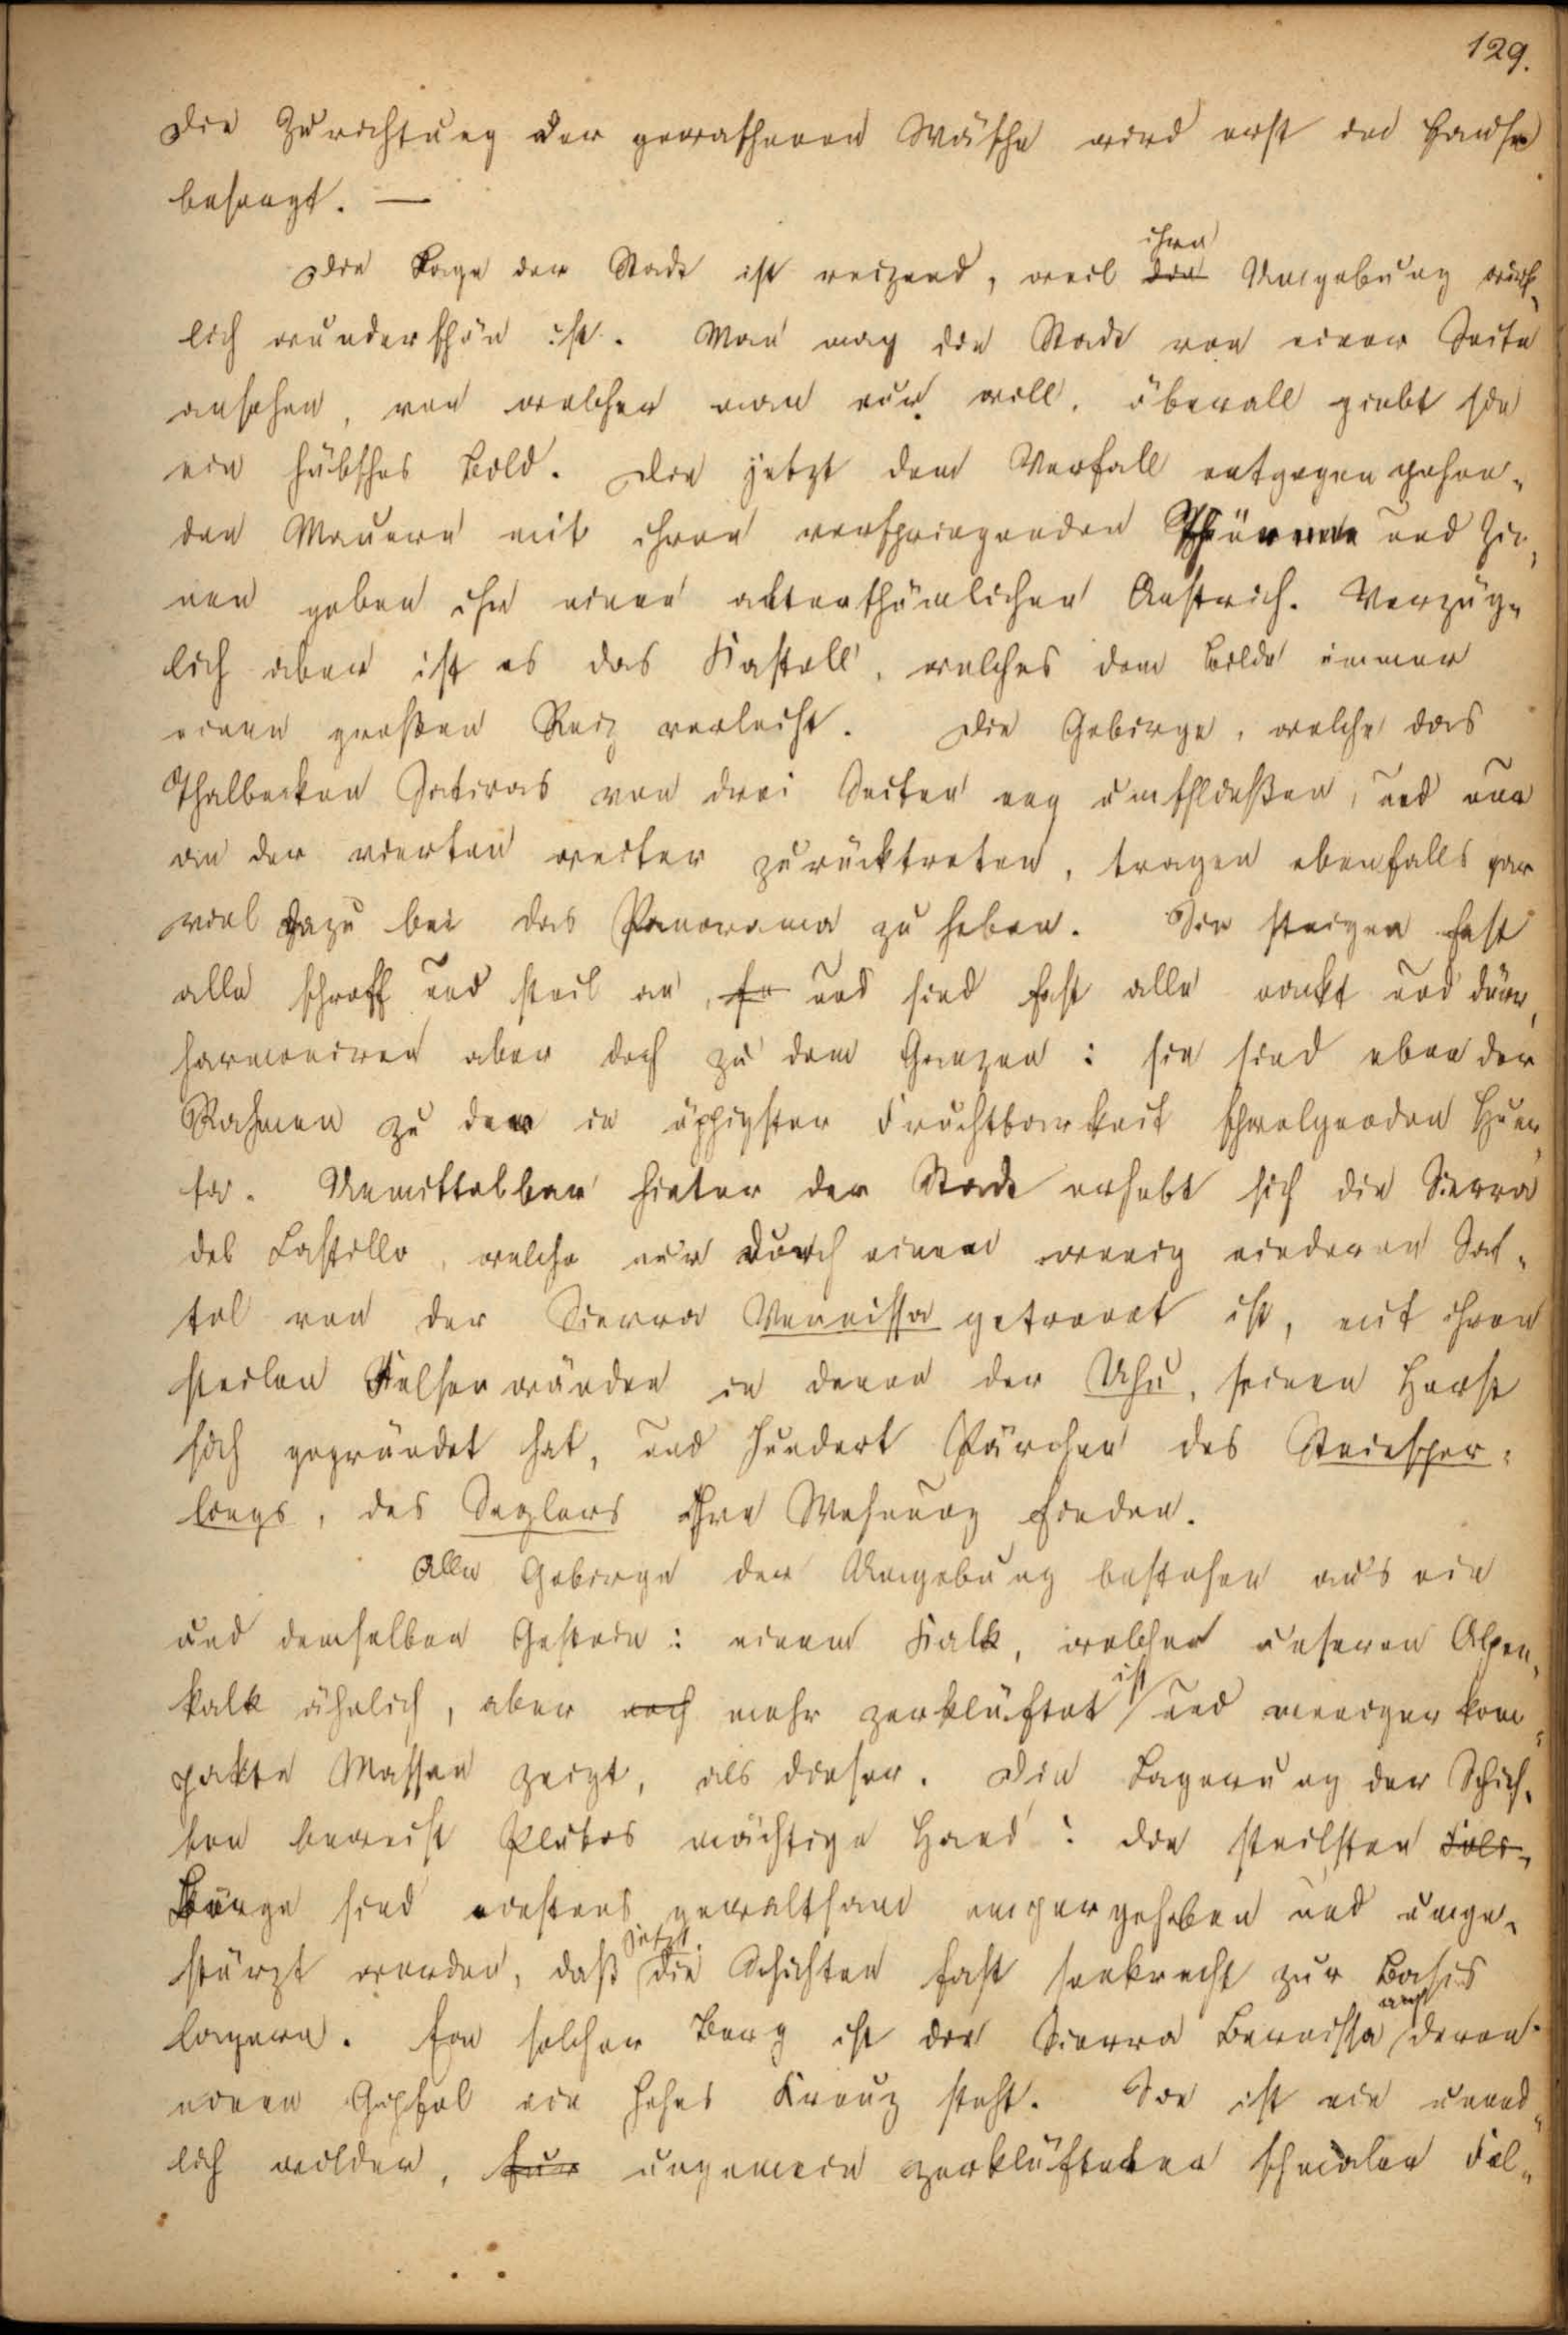 129.
Die Zurichtung der gewaschenen Wäsche wird erst im Hause
besorgt. —
ihre
Die Lage der Stadt ist reizend, weil die Umgebung wirk-
lich wunderschön ist. Man mag die Stadt von einer Seite
ansehen, von welcher man nur will, überall giebt sie
ein hübsches Bild. Die jetzt dem Verfall entgegen gehen-
den Mauern mit ihren vorspringenden Thürmen und Zin-
nen geben ihr einen alterthümlichen Anstrich. Vorzüg-
lich aber ist es das Kastell, welches dem Bilde immer
einen großen Reiz verleiht. Die Gebirge, welche das
Thalbecken Jativas von drei Seiten eng umschließen, und nur
an der vierten weiter zurücktreten, tragen ebenfalls gar
viel dazu bei das Panorama zu heben. Sie steigen fast
alle schroff und steil an, und sind fast alle nackt und dürr,
harmoniren aber doch zu dem Ganzen: sie sind eben der
Rahmen zu der in üppigster Fruchtbarkeit schwelgenden Huer-
ta. Unmittelbar hinter der Stadt erhebt sich die Sierra
del Castillo, welche nur durch einen wenig niederen Sat-
tel von der Sierra Vernissa getrennt ist, mit ihren
steilen Felsenwänden in denen der Uhu, seinen Horst
sich gegründet hat, und hundert Pärchen des Steinsper-
lings, des Seglers ihre Wohnung finden.
Alle Gebirge der Umgebung bestehen aus ein
und demselben Gestein: einem Kalk, welcher unserem Alpen-
ist
kalk ähnlich, aber noch mehr zerklüftet und weniger kom-
pakte Massen zeigt, als dieser. Die Lagerung der Schich-
ten beweist Plutos mächtige Hand: die steilsten Fels-
Berge sind einstens gewaltsam empor gehoben und umge-
jetzt
stürzt worden, daß die Schichten fast senkrecht zur Basis
auf
lagern. Ein solcher Berg ist die Sierra Bernissa deren
einen Gipfel ein hohes Kreuz steht. Sie ist ein unend-
lich wilder, ungemein zerklüfteter schmaler Fel-